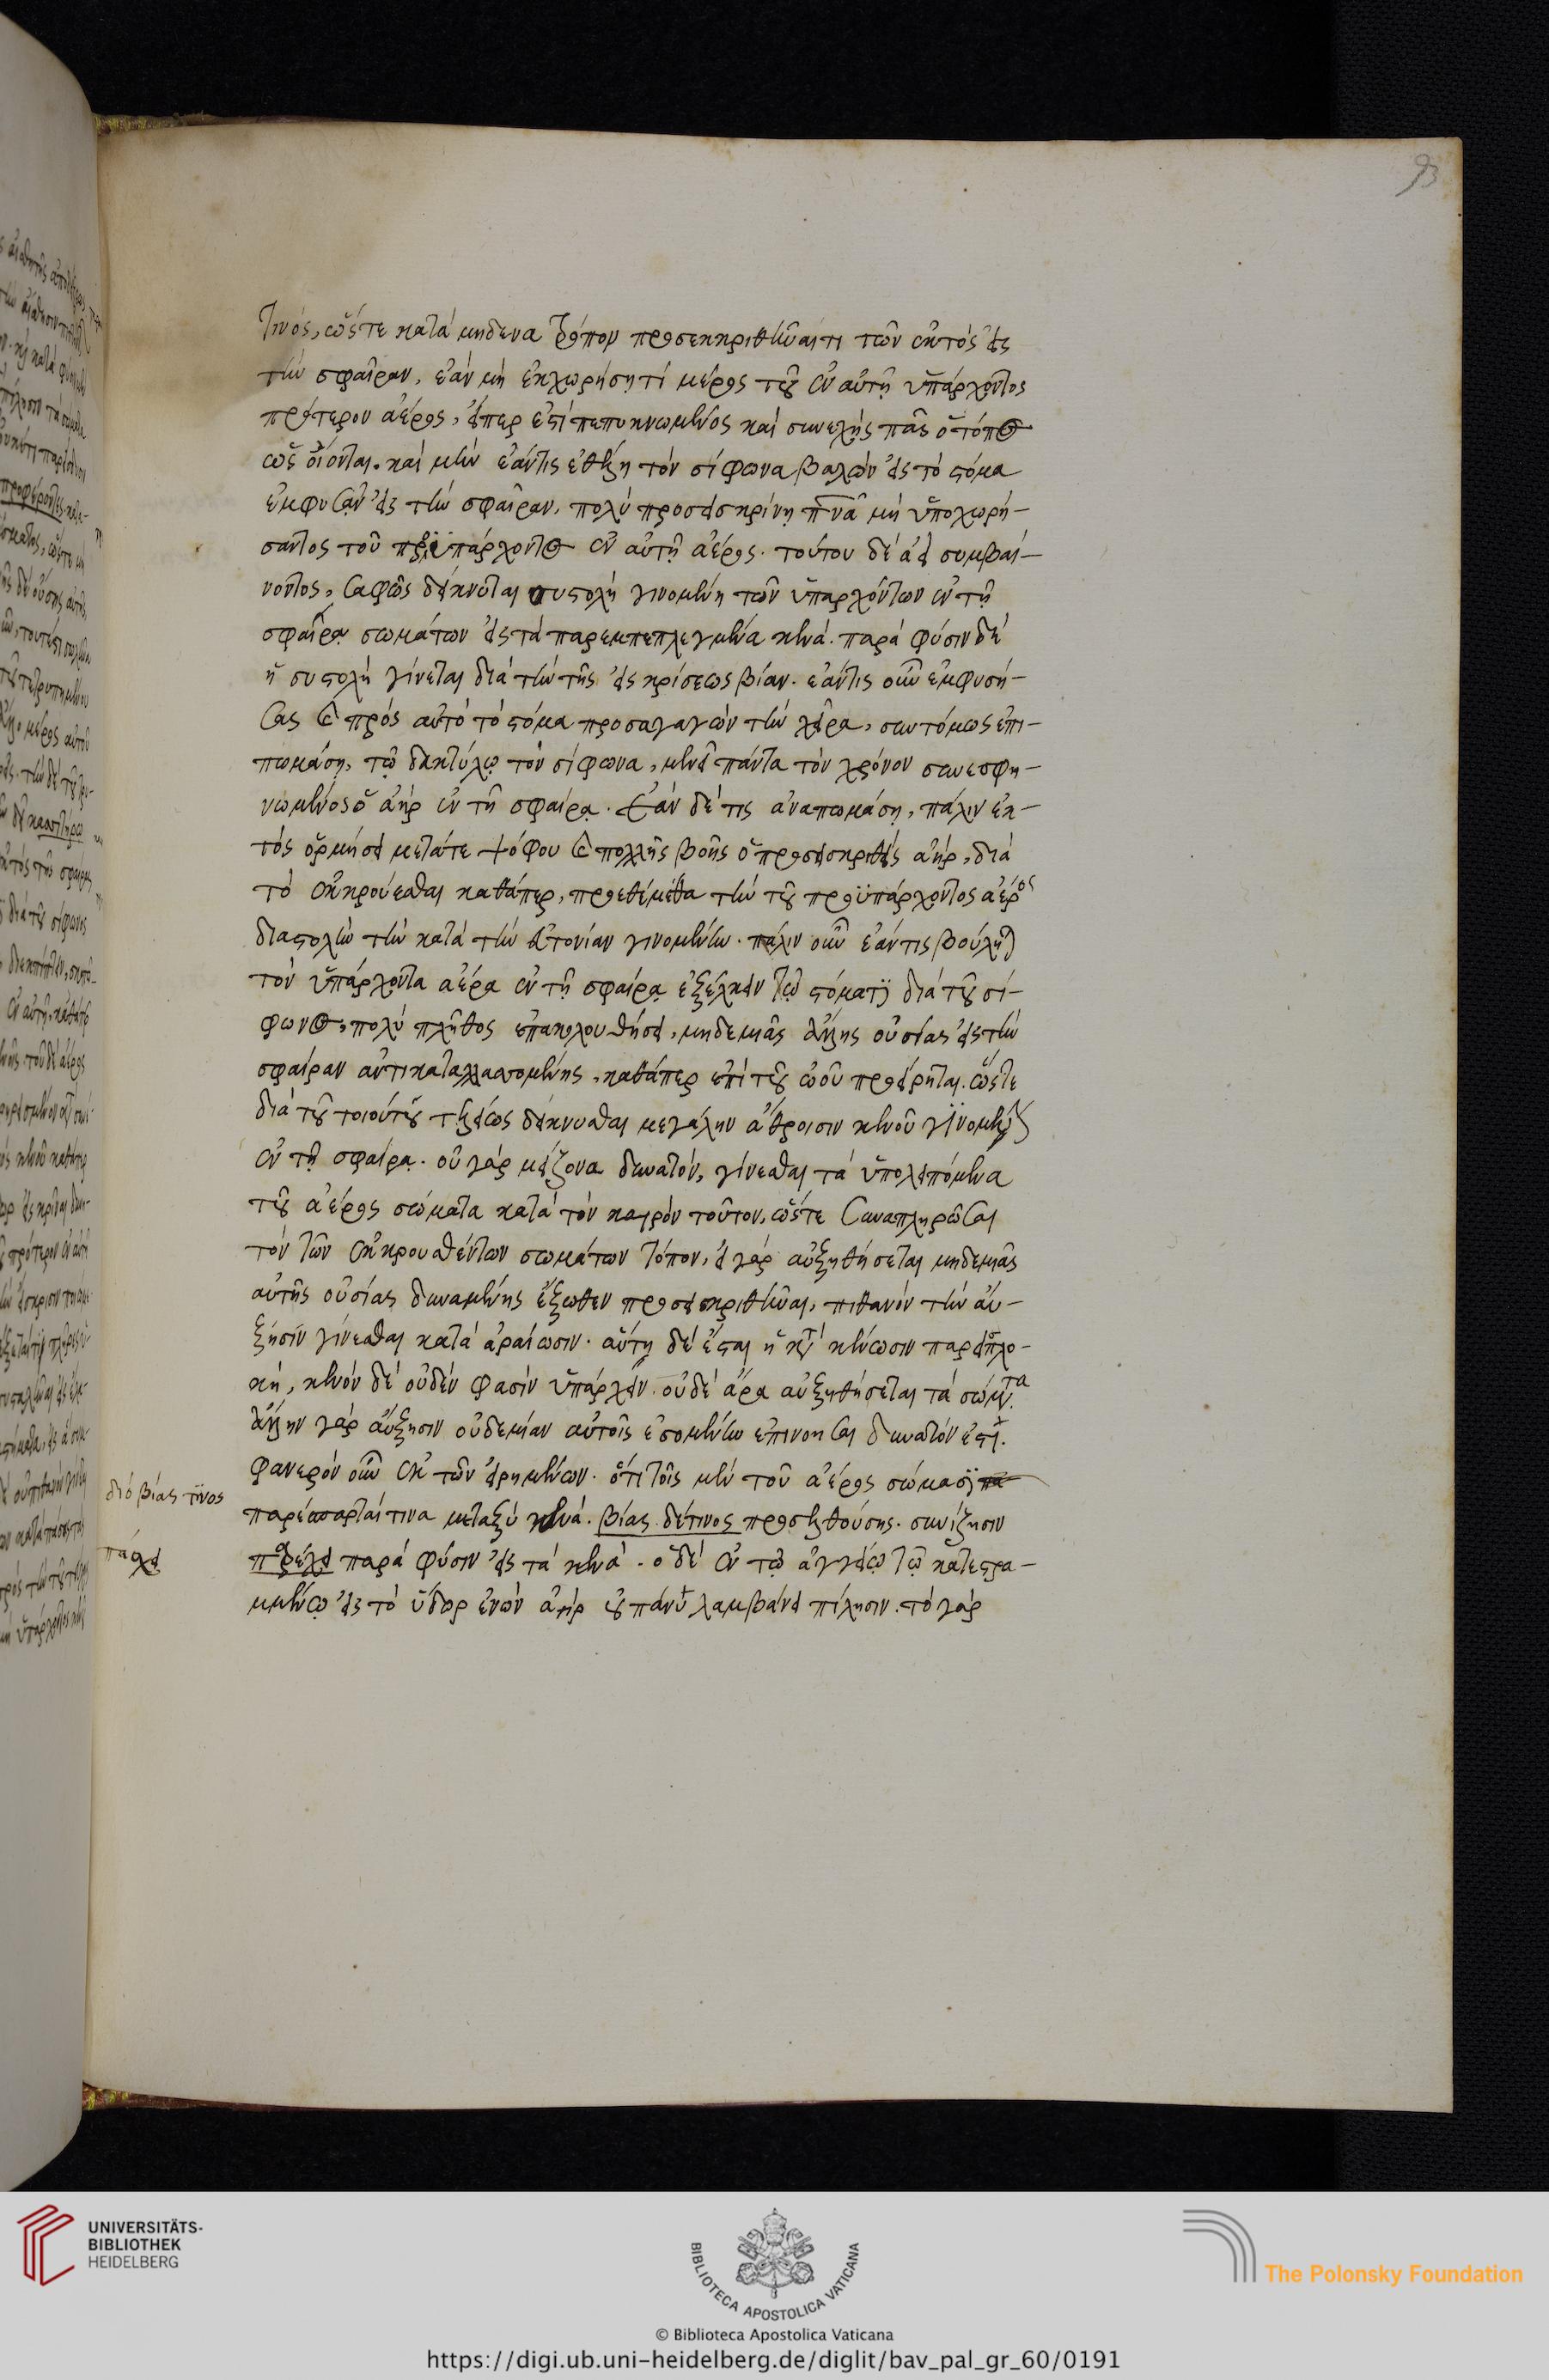 93
τινός, ὥστε κατὰ μηδένα τρόπον προσεκκριθῆναί τι τῶν ἐκτὸς εἰς
τὴν σφαῖραν, ἐὰν μὴ ἐκχωρήσῃ τί μέρος τοῦ ἐν αὐτῇ ὑπάρχοντος
πρότερον ἀέρος, εἴπερ ἐστὶ πεπυκνωμένος καὶ συνεχὴς πᾶς ὁ τόπος
ὡς οἴονται. καὶ μὴν ἐάν τις ἐθέλῃ τὸν σίφωνα βαλὼν εἰς τὸ στόμα
ἐμφυσᾶν εἰς τὴν σφαῖραν, πολὺ προσεισκρίνῃ πνεῦμα μὴ ὑποχωρή-
σαντος τοῦ προϋπάρχοντος ἐν αὐτῇ ἀέρος. τούτου δὲ ἀεὶ συμβαί-
νοντος, σαφῶς δείκνυται συστολὴ γινομένη τῶν ὑπαρχόντων ἐν τῇ
σφαίρᾳ σωμάτων εἰς τὰ παρεμπεπλεγμένα κενά. παρὰ φύσιν δὲ
ἡ συστολὴ γίνεται διὰ τὴν τῆς εἰσκρίσεως βίαν. ἐάν τις οὖν ἐμφυσή-
σας καὶ πρὸς αὐτὸ τὸ στόμα προσαγαγὼν τὴν χεῖρα, συντόμως ἐπι-
πωμάσῃ, τῷ δακτύλῳ τὸν σίφωνα, μένει πάντα τὸν χρόνον συνεσφη-
νωμένος ὁ ἀὴρ ἐν τῇ σφαίρᾳ. Ἐὰν δέ τις ἀναπωμάσῃ, πάλιν ἐκ-
τὸς ὁρμήσει μετά τε ψόφου καὶ πολλῆς βοῆς ὁ προσεισκριθεὶς ἀήρ, διὰ
τὸ ἐκκρούεσθαι καθάπερ, προεθέμεθα τὴν τοῦ προϋπάρχοντος ἀέρος
διαστολὴν τὴν κατὰ τὴν εὐτονίαν γινομένην. πάλιν οὖν ἐάν τις βούληται
τὸν ὑπάρχοντα ἀέρα ἐν τῇ σφαίρᾳ ἐξέλκειν τῷ στόματι διὰ τοῦ σί-
φωνος, πολὺ πλῆθος ἐπακολουθήσει, μηδεμιᾶς ἄλλης οὐσίας εἰς τὴν
σφαῖραν ἀντικαταλλασσομένης, καθάπερ ἐπὶ τοῦ ὠοῦ προείρηται. ὥστε
διὰ τοῦ τοιούτου τελείως δείκνυσθαι μεγάλην ἄθροισιν κενοῦ γινομένην
ἐν τῇ σφαίρᾳ. οὐ γὰρ μείζονα δυνατόν, γίνεσθαι τὰ ὑπολειπόμενα
τοῦ ἀέρος σώματα κατὰ τὸν καιρὸν τοῦτον, ὥστε συναπληρῶσαι
τὸν τῶν ἐκκρουσθέντων σωμάτων τόπον, εἰ γὰρ αὐξηθήσεται μηδεμιᾶς
αὐτῆς οὐσίας δυναμένης ἔξωθεν προσεισκριθῆναι, πιθανὸν τὴν αὔ-
ξησιν γίνεσθαι κατὰ ἀραίωσιν. αὕτη δέ ἐσται ἡ κατὰ κένωσιν παρεμπλο-
κή, κενὸν δὲ οὐδέν φασιν ὑπάρχειν. οὐδὲ ἄρα αὐξηθήσεται τὰ σώματα.
ἄλλην γὰρ αὔξησιν οὐδεμίαν αὐτοῖς ἐσομένην ἐπινοῆσαι δυνατόν ἐστι.
φανερὸν οὖν ἐκ τῶν εἰρημένων. ὅτι τοῖς μὲν τοῦ ἀέρος σώμασι πα
παρέσπαρταί τινα μεταξὺ κενά. βίας δέ τινος προσελθούσης. συνίζησιν
παρέχει παρὰ φύσιν εἰς τὰ κενά. ὁ δὲ ἐν τῷ ἀγγείῳ τῷ κατεστρα-
μμένῳ εἰς τὸ ὕδωρ ἐνὼν ἀὴρ οὐ πάνυ λαμβάνει πίλησιν. τὸ γὰρ
διὸ βίας τινος
πάσχει
UNIVERSITÄTS-
BIBLIOTHEK
HEIDELBERG
BIBLIOTECA APOSTOLICA VATICANA
The Polonsky Foundation
© Biblioteca Apostolica Vaticana
https://digi.ub.uni-heidelberg.de/diglit/bav_pal_gr_60/0191